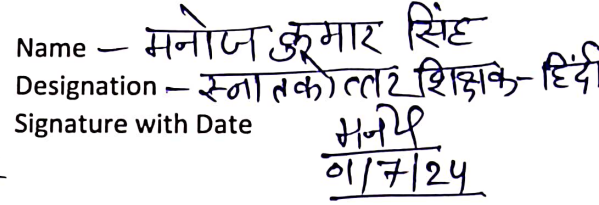 Name – मनोज कुमार सिंह
Designation – स्नातकोत्तर शिक्षक- हिंदी
Signature with Date
01/7/24